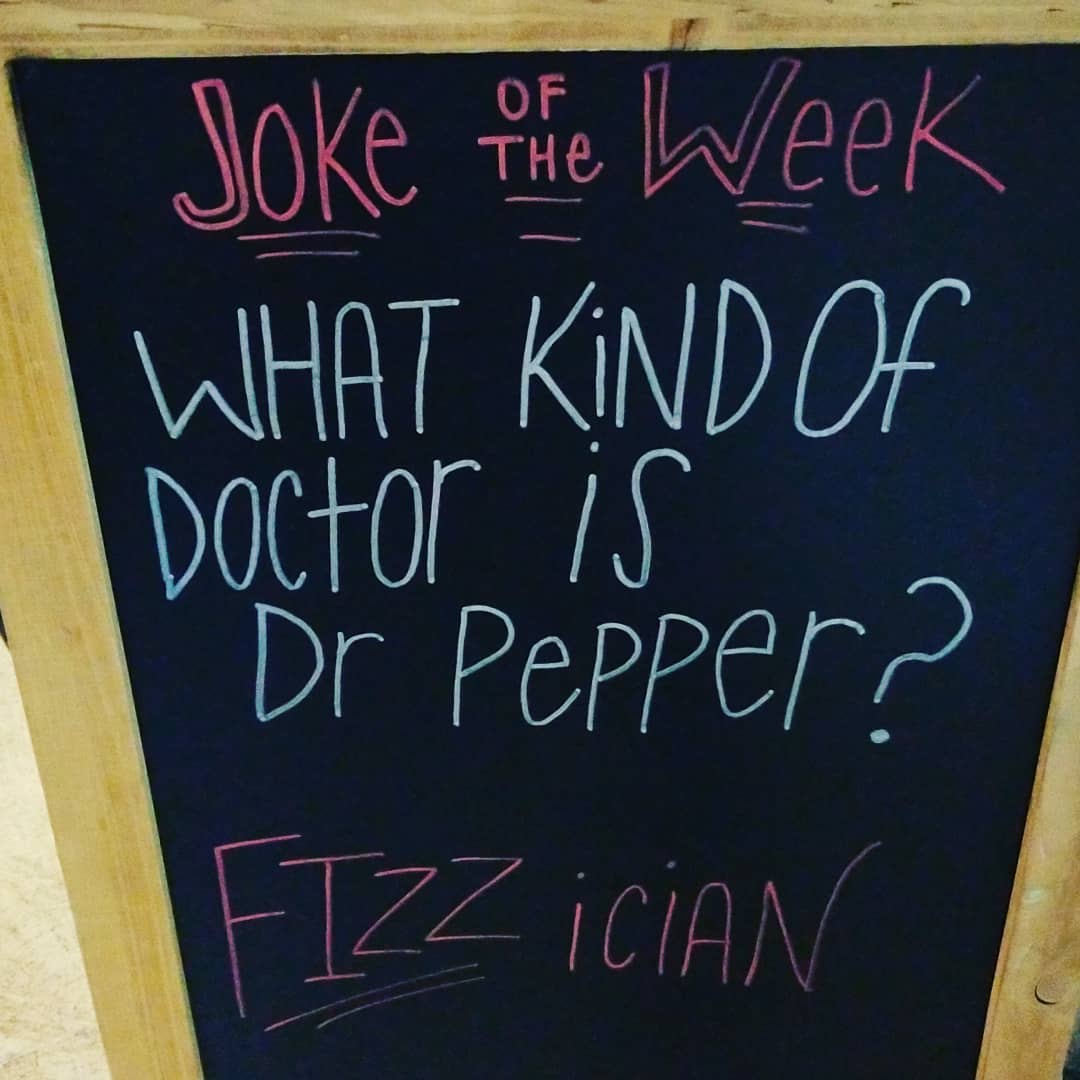 JOKe OF THe Week
WHAT KiND Of
DOCtOr iS
Dr PePPer?
FIZZiciAN